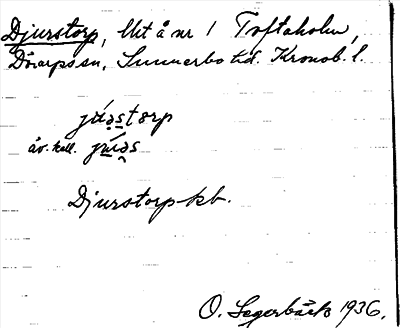 Djurstorp, Utå nr 1 Toftaholm,
Dörarps sn, Sunnerbo hd. Kronob. l.
jú́əstorp
äv. kall. jú́əs
Djurstorp-kb.
O. Segerbäck 1936.